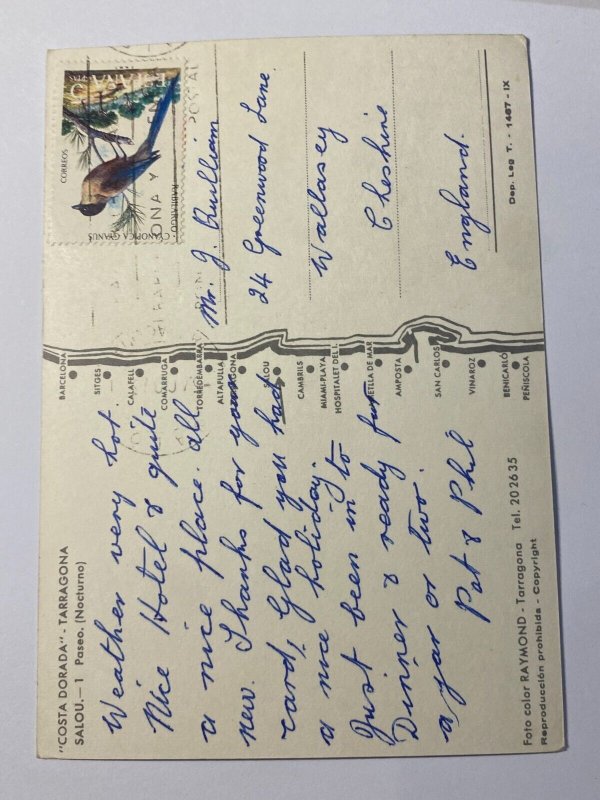 "COSTA DORADA" - TARRAGONA
SALOU.—1 Paseo. (Nocturno)
Weather very hot.
Nice Hotel & quite
a nice place. all
new. Thanks for your
card, Glad you had
a nice holiday.
Just been in to
Dinner & ready for
a jar or two.
Pat & Phil
Foto color RAYMOND - Tarragona Tel. 202635
Reproducción prohibida - Copyright
BARCELONA
SITGES
CALAFELL
COMARRUGA
TORREDEMBARRA
ALTAFULLA
CAMBRILS
MIAMI-PLAYA
HOSPITALET DEL I.
AMPOSTA
SAN CARLOS
VINAROZ
BENICARLÓ
PEÑISCOLA
CORREOS
CYANOPICA CYANUS
RABILARGO
Mr. J. Quilliam
24 Greenwood Lane.
Wallasey
Cheshire
England.
Dep. Leg T. - 1467 - IX